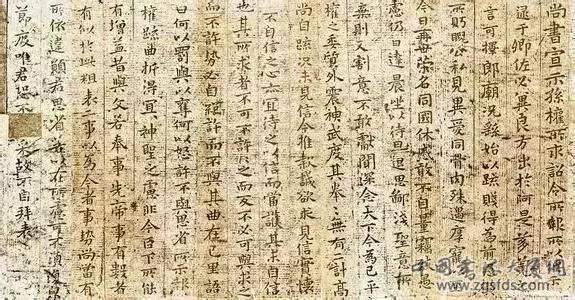 尚書宣示孫權所求詔令所報所以
逮于卿佐必冀良方出於阿是芻蕘
言可擇郎廟況繇始以疏賤得為前
所眄睨公私見異愛同骨肉殊遇厚寵
今日再世榮名同國休慼敢不自量竊致愚
慮仍日達晨坐以待旦退思鄙淺聖意所
棄則又割意不敢獻聞深念天下今為已平
權之委質外震神武度其拳拳無有二計高
尚自疏況未見信今推款誠欲求見信實懷
不自信之心亦宜待之以信而當護其未自信
也其所求者不可不許許之而反不必可與求之
而不許勢必自絕許而不與其曲在己里語
曰何以罰與以奪何以怒許不與思省所示報
權疏曲折得宜宜神聖之慮非今臣下所能
有增益昔與文若奉事先帝事有數者
有似於此粗表二事以為今者事勢尚當有
所依違願君思省若以在所慮可不須復
節度唯君恐不采故不自拜表
中國書法大展網
www.zgsfds.com